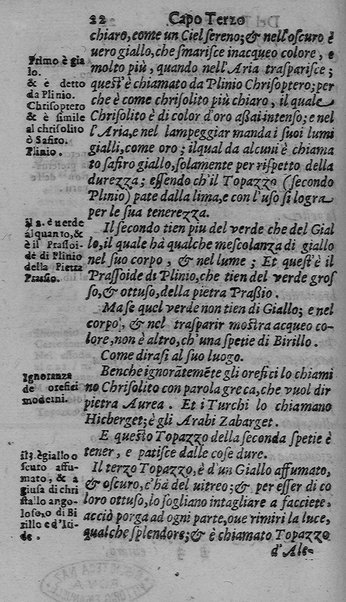 22 Capo Terzo
chiaro, come un Ciel sereno; & nell'oscuro è
uero giallo, che smarisce inacqueo colore, e
molto più, quando nell'Aria trasparisce;
quest'è chiamato da Plinio Chrisoptero; per
che è come chrisolito più chiaro, il quale
Chrisolito è di color d'oro assai intenso; e nel
l'Aria, e nel lampeggiar manda i suoi lumi
gialli, come oro; il qual da alcuni è chiama
to safiro giallo, solamente per rispetto della
durezza; essendo ch'il Topazzo (secondo
Plinio) pate dalla lima, e con l'uso si logra
per la sua tenerezza.
Il secondo tien piu del verde che del Gial
lo, il quale hà qualche mescolanza di giallo
nel suo corpo, & nel lume; Et quest'è il
Prassoide di Plinio, che tien del verde gros
so, & ottuso, della pietra Prassio.
Ma se quel verde non tien di Giallo; e nel
corpo, & nel trasparir mostra acqueo co-
lore, non è altro, ch'una spetie di Birillo.
Come dirasi al suo luogo.
Benche ignorātemēte gli orefici lo chiami
no Chrisolito con parola greca, che vuol dir
pietra Aurea. Et i Turchi lo chiamano
Hicberget; è gli Arabi Zabarget.
E questo Topazzo della seconda spetie è
tener, e patisce dalle cose dure.
Il terzo Topazzo, è d'un Giallo affumato,
& oscuro, c'hà del uitreo; & per esser di co
loro ottuso, lo sogliano intagliare a facciete,
acciò porga ad ogni parte, oue rimiri la luce,
qualche splendore; & è chiamato Topazzo
d'Ale-
Primo è gia
lo.
& è detto
da Plinio.
Chrisoptero
& è simile
al chrisolito
ò Safito.
Plinio.
il 2. è uerde
alquanto, &
è il Prassoi-
de di Plinio
della Pietra
Prassio.
Ignoranza
de orefici
moderni.
il 3. è giallo o
scuto affu-
mato, & a
giusa di chri
stallo ango-
loso, ò di Bi
rillo e d'Iri-
de.